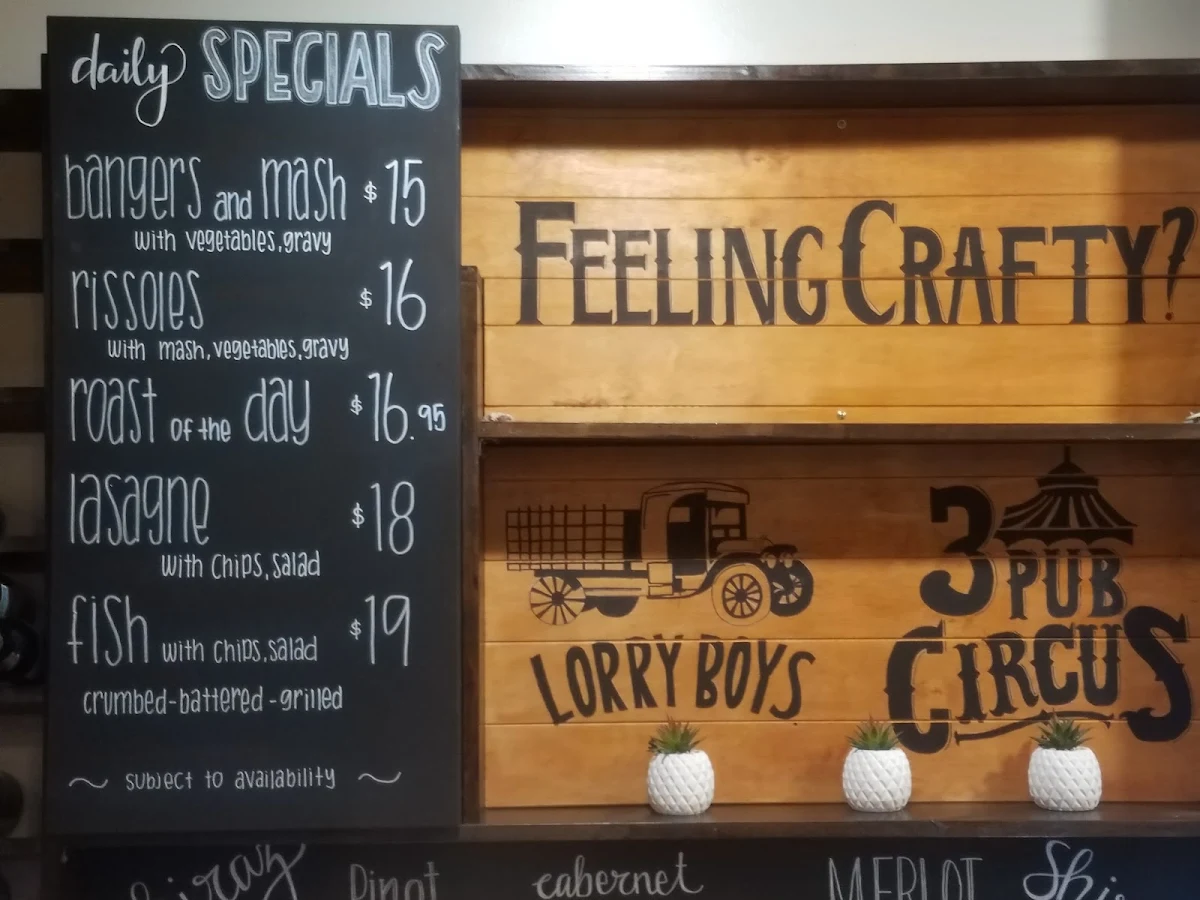 daily SPECIALS
bangers and mash $15
with vegetables, gravy
rissoles $16
with mash, vegetables, gravy
roast of the day $16.95
lasagne $18
with chips, salad
fish with chips, salad $19
crumbed-battered-grilled
~ subject to availability ~
FEELING CRAFTY?
LORRY BOYS
3 PUB
CIRCUS
Pinot cabernet MERLOT